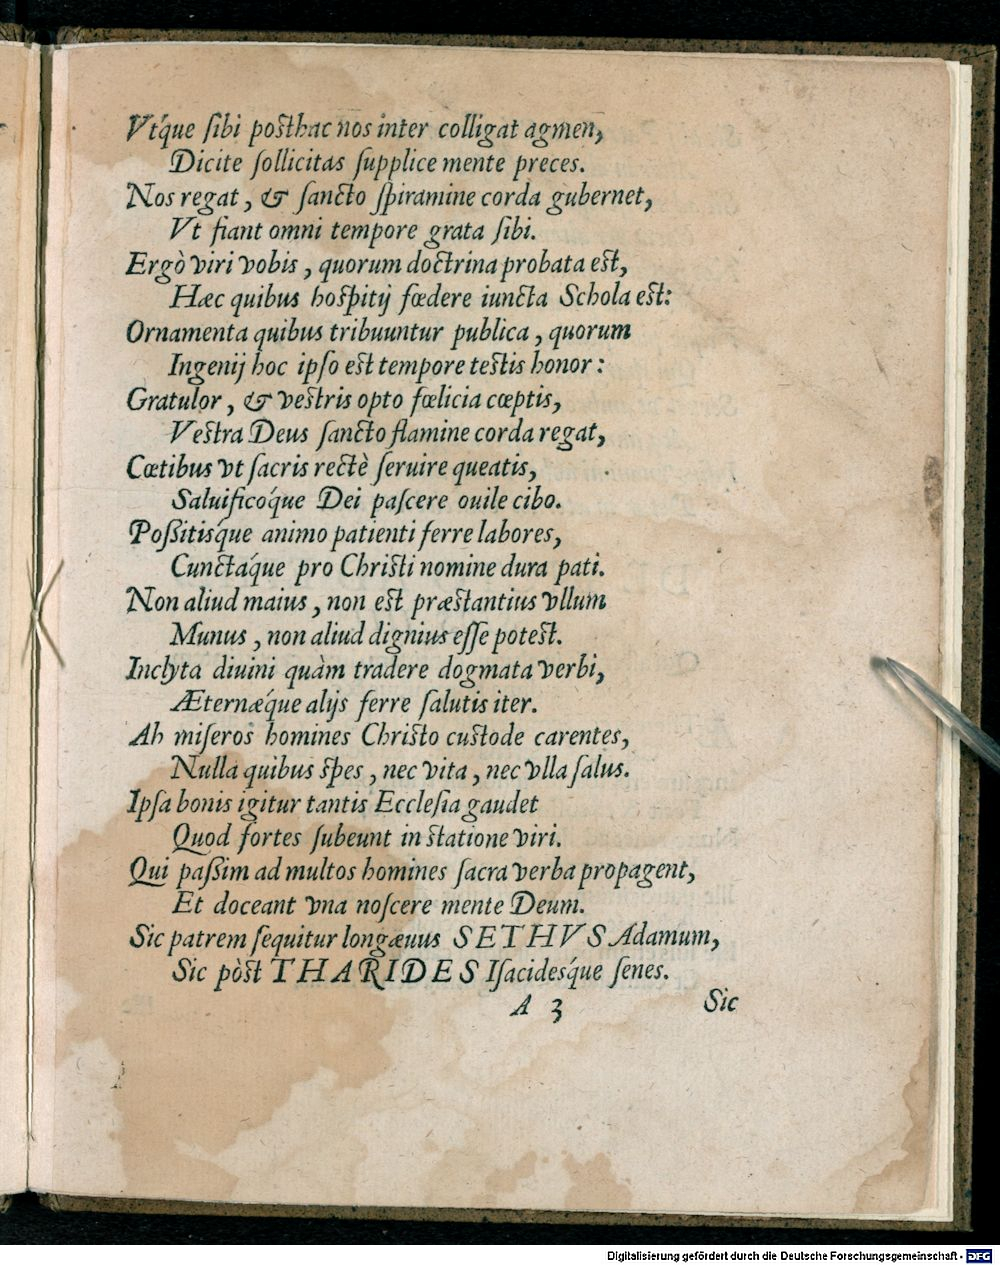 Vtq́ue ſibi poſthac nos inter colligat agmen,
Dicite ſollicitas ſupplice mente preces.
Nos regat, & ſancto ſpiramine corda gubernet,
Vt fiant omni tempore grata ſibi.
Ergò viri vobis, quorum doctrina probata eſt,
Hæc quibus hoſpitij fœdere iuncta Schola eſt:
Ornamenta quibus tribuuntur publica, quorum
Ingenij hoc ipſo eſt tempore teſtis honor:
Gratulor, & veſtris opto fœlicia cœptis,
Veſtra Deus ſancto flamine corda regat,
Cœtibus vt ſacris rectè ſeruire queatis,
Saluificoq́ue Dei paſcere ouile cibo.
Poßitisq́ue animo patienti ferre labores,
Cunctaq́ue pro Chriſti nomine dura pati.
Non aliud maius, non eſt præſtantius vllum
Munus, non aliud dignius eſſe poteſt.
Inclyta diuini quàm tradere dogmata verbi,
Æternæq́ue alijs ferre ſalutis iter.
Ah miſeros homines Chriſto cuſtode carentes,
Nulla quibus ſpes, nec vita, nec vlla ſalus.
Ipſa bonis igitur tantis Eccleſia gaudet
Quod fortes ſubeunt in ſtatione viri.
Qui paßim ad multos homines ſacra verba propagent,
Et doceant vna noſcere mente Deum.
Sic patrem ſequitur longæuus SETHVS Adamum,
Sic pòſt THARIDES Iſacidesq́ue ſenes.
A 3 Sic
Digitalisierung gefördert durch die Deutsche Forschungsgemeinschaft - DFG